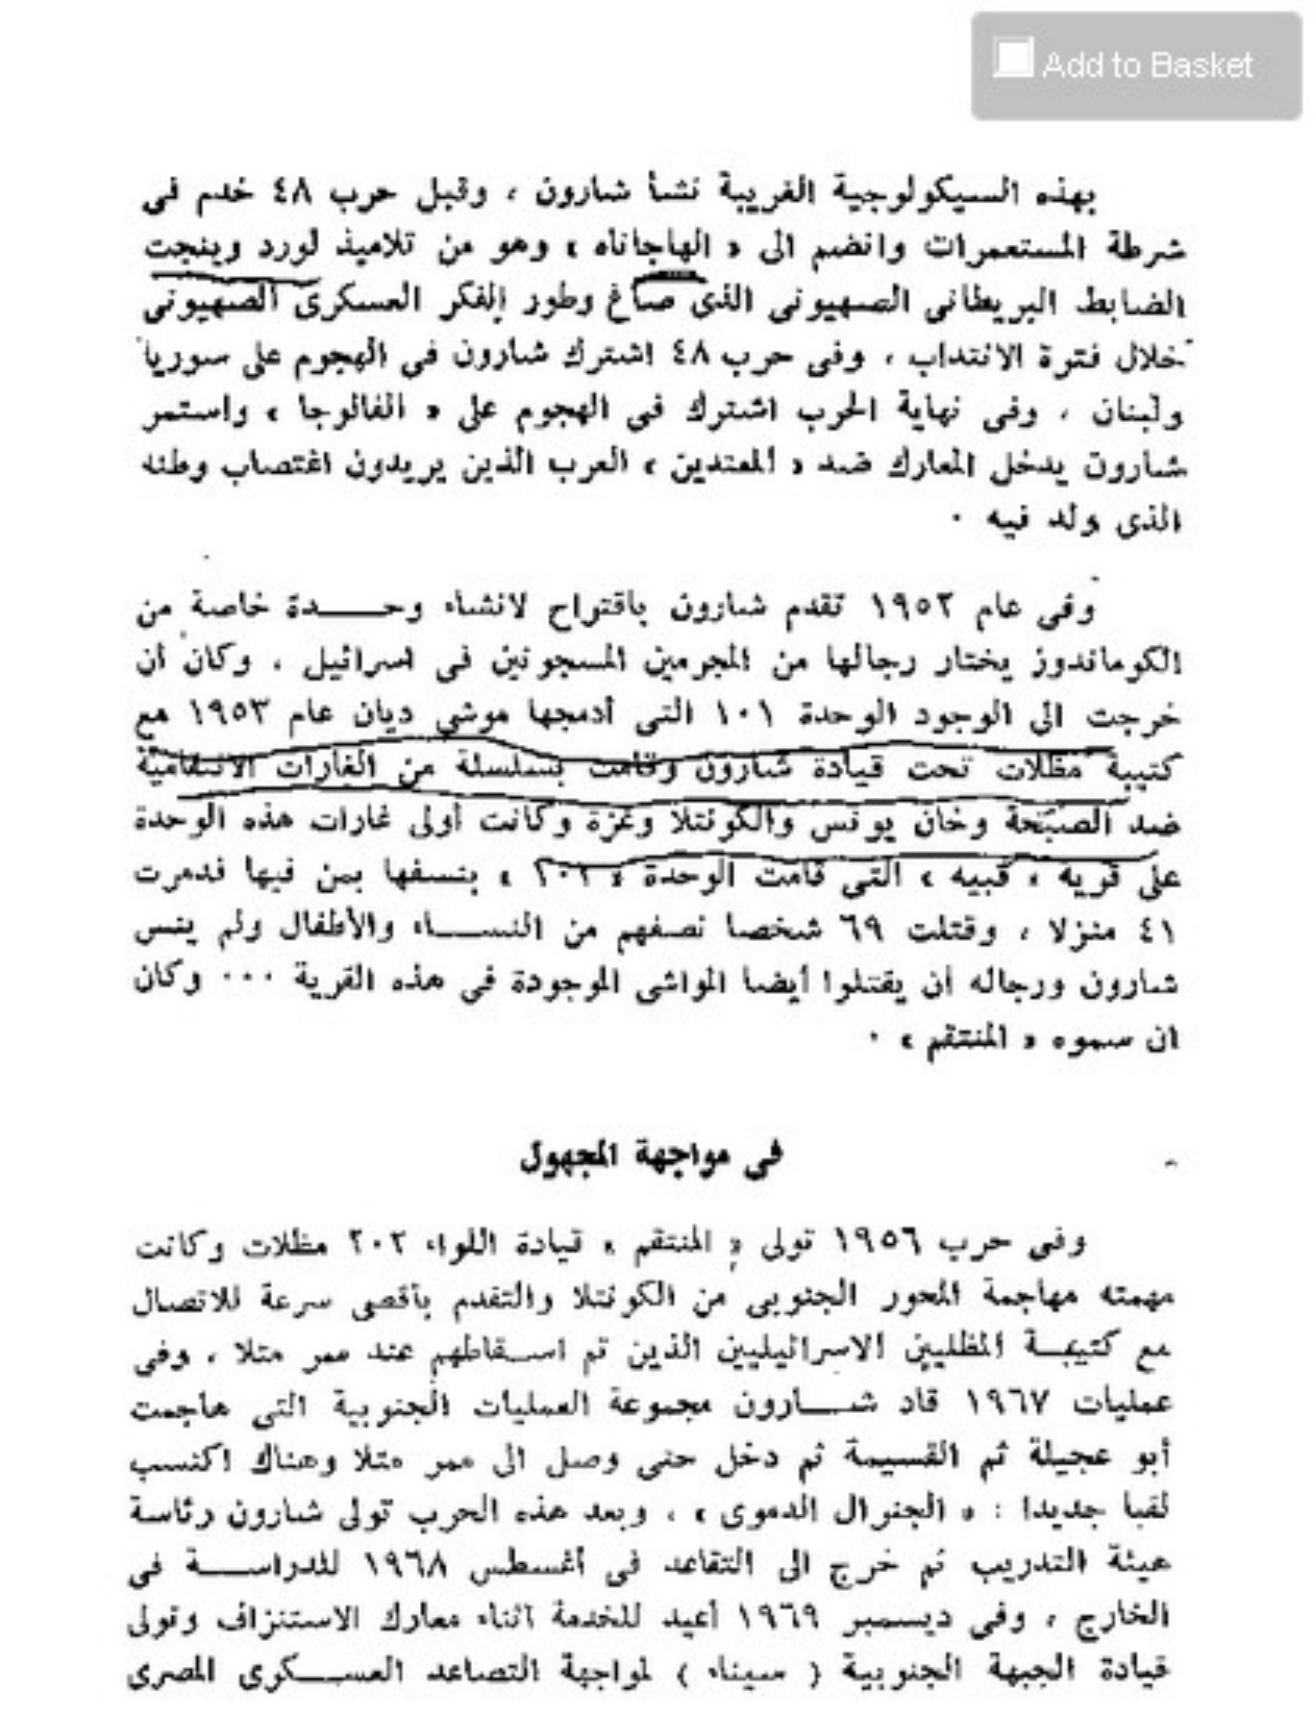 Add to Basket
بهذه السيكولوجية الغريبة نشأ شارون ، وقبل حرب ٤٨ خدم فى
شرطة المستعمرات وانضم الى « الهاجاناه » وهو من تلاميذ لورد وينجت
الضابط البريطانى الصهيونى الذى صاغ وطور الفكر العسكرى الصهيونى
خلال فترة الانتداب ، وفى حرب ٤٨ اشترك شارون فى الهجوم على سوريا
ولبنان ، وفى نهاية الحرب اشترك فى الهجوم على « الفالوجا » واستمر
شارون يدخل المعارك ضد « المعتدين » العرب الذين يريدون اغتصاب وطنه
الذى ولد فيه ٠
وفى عام ١٩٥٢ تقدم شارون باقتراح لانشاء وحـــدة خاصة من
الكوماندوز يختار رجالها من المجرمين المسجونين فى اسرائيل ، وكان أن
خرجت الى الوجود الوحدة ١٠١ التى أدمجها موشى ديان عام ١٩٥٣ مع
كتيبة مظلات تحت قيادة شارون وقامت بسلسلة من الغارات الانتقامية
ضد الصبحة وخان يونس والكونتلا وغزة وكانت أولى غارات هذه الوحدة
على قرية « قبيه » التى قامت الوحدة « ٢٠٢ » بنسفها بمن فيها فدمرت
٤١ منزلا ، وقتلت ٦٩ شخصا نصفهم من النســـاء والأطفال ولم ينس
شارون ورجاله أن يقتلوا أيضا المواشى الموجودة فى هذه القرية ٠٠٠ وكان
ان سموه « المنتقم » ٠
فى مواجهة المجهول
وفى حرب ١٩٥٦ تولى « المنتقم » قيادة اللواء ٢٠٢ مظلات وكانت
مهمته مهاجمة المحور الجنوبى من الكونتلا والتقدم بأقصى سرعة للاتصال
مع كتيبـــة المظليين الاسرائيليين الذين تم اســقاطهم عند ممر متلا ، وفى
عمليات ١٩٦٧ قاد شـــارون مجموعة العمليات الجنوبية التى هاجمت
أبو عجيلة ثم القسيمة ثم دخل حتى وصل الى ممر متلا وهناك اكتسب
لقبا جديدا : « الجنرال الدموى » ، وبعد هذه الحرب تولى شارون رئاسة
هيئة التدريب ثم خرج الى التقاعد فى أغسطس ١٩٦٨ للدراســـة فى
الخارج ، وفى ديسمبر ١٩٦٩ أعيد للخدمة أثناء معارك الاستنزاف وتولى
قيادة الجبهة الجنوبية ( سيناء ) لمواجهة التصاعد العســـكرى المصرى